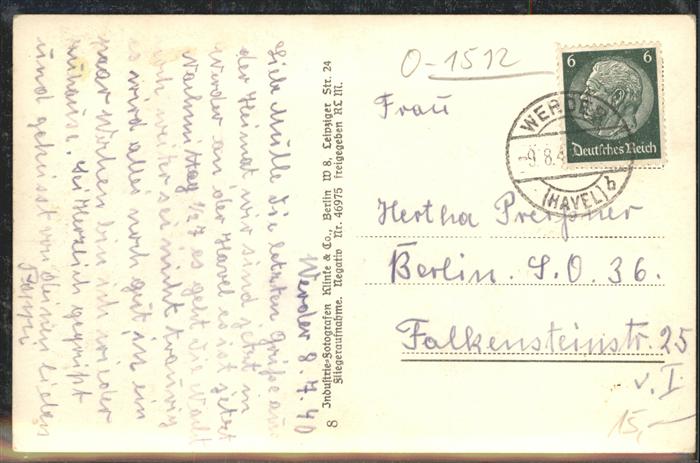 Werder 8.7.40
Liebe Mulle die letzten Grüße aus
der Heimat wir sind jetzt in
Werder an der Havel es ist jetzt
Nachmittag 1/2 7 es geht die Nacht
noch weiter sei nicht traurig
es wird alles noch gut in ein
paar Wochen bin ich wieder
zuhause. Sei Herzlich gegrüßt
und geküsst von deinen lieben
Pappi
8 Industrie-Fotografen Klinke & Co., Berlin W 8, Leipziger Str. 24
Fliegeraufnahme. Negativ Nr. 46975 freigegeben RLM.
O-1512
6 6
Deutsches Reich
WERDER
-9.8.4
(HAVEL) b
Frau
Hertha Preißner
Berlin. S.O. 36.
Falkensteinstr. 25
v. I
15,-